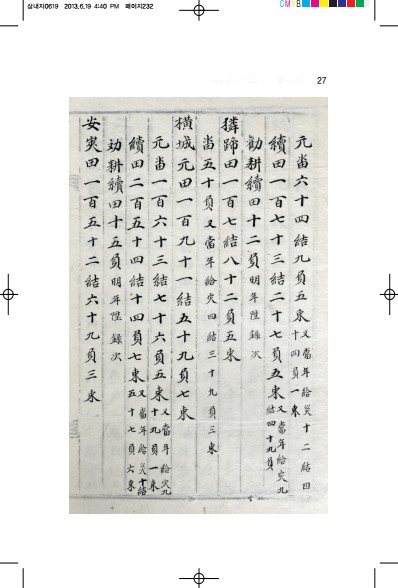 삼내지0619 2013.6.19 4:40 PM 페이지232
CM
27
元畓六十四結九負五束又當年給災十二結四十四負一束
續田一百七十三結二十七負五束又當年給灾九結四十九負
勸耕續田十二負明年陞錄次
獜蹄田一百七結八十二負五束
畓五十負又當年給灾四結三十九負三束
橫城元田一百九十一結五十九負七束
元畓一百六十三結七十六負五束又當年給灾九十九負一束
續田二百五十四結十四負七束又當年給災十結五十七負六束
劝耕續田十五負明年陞錄次
安突田一百五十二結六十九負三束